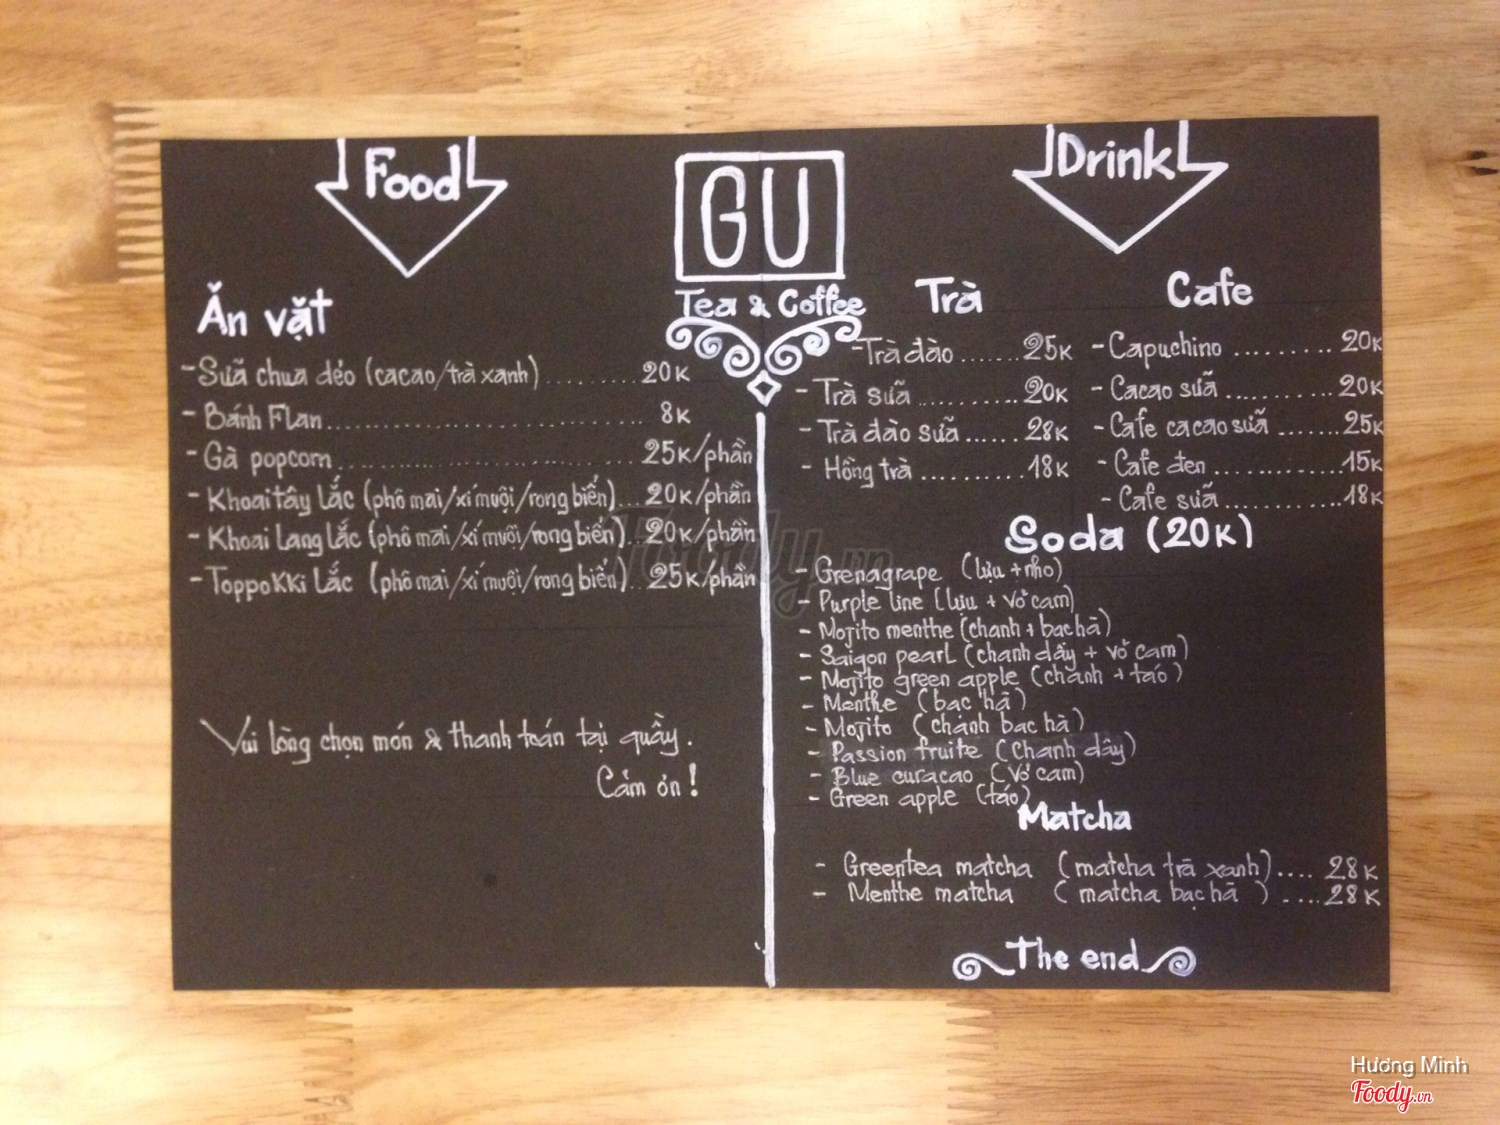 Food
GU
Tea & Coffee
Drink
Ăn vặt
- Sữa chua dẻo (cacao/trà xanh) ......... 20K
- Bánh Flan ......... 8K
- Gà popcorn ......... 25K/phần
- Khoai tây lắc (phô mai/xí muội/rong biển)... 20K/phần
- Khoai Lang lắc (phô mai/xí muội/rong biển).. 20K/phần
- Toppokki lắc (phô mai/xí muội/rong biển).. 25K/phần
Vui lòng chọn món & thanh toán tại quầy.
Cảm ơn!
Trà
- Trà đào ...... 25K
- Trà sữa ......... 20K
- Trà đào sữa ...... 28K
- Hồng trà ......... 18K
Cafe
- Capuchino ......... 20K
- Cacao sữa ......... 20K
- Cafe cacao sữa ....... 25K
- Cafe đen ......... 15K
- Cafe sữa ......... 18K
Soda (20K)
- Grenagrape (lựu + nho)
- Purple line (lựu + vỏ cam)
- Mojito menthe (chanh + bạc hà)
- Saigon pearl (chanh dây + vỏ cam)
- Mojito green apple (chanh + táo)
- Menthe (bạc hà)
- Mojito (chanh bạc hà)
- Passion fruite (chanh dây)
- Blue curacao (vỏ cam)
- Green apple (táo)
Matcha
- Greentea matcha (matcha trà xanh).... 28K
- Menthe matcha (matcha bạc hà) .... 28K
The end
Foody.vn
Hương Minh
Foody.vn